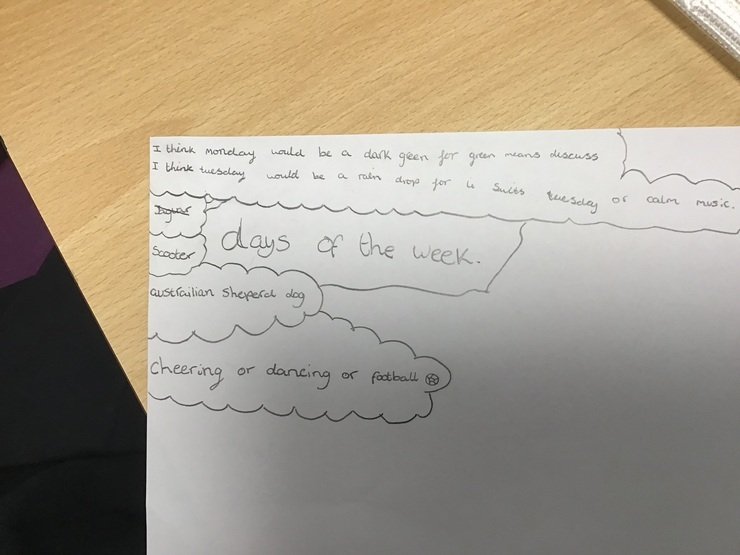 I think monday would be a dark green for green means discuss
I think tuesday would be a rain drop for it suits tuesday or calm music.
days of the week.
Scooter
austrailian Sheperd dog
cheering or dancing or football